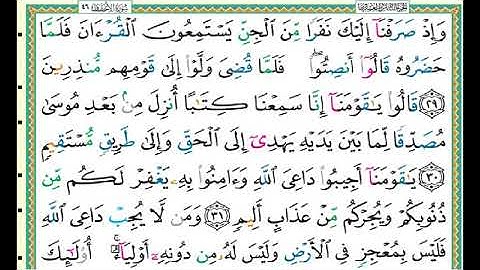 سورة الأحقاف ٤٦
وَإِذْ صَرَفْنَآ إِلَيْكَ نَفَرًا مِّنَ ٱلْجِنِّ يَسْتَمِعُونَ ٱلْقُرْءَانَ فَلَمَّا
حَضَرُوهُ قَالُوٓا۟ أَنصِتُوا۟ ۖ فَلَمَّا قُضِىَ وَلَّوْا۟ إِلَىٰ قَوْمِهِم مُّنذِرِينَ
٢٩ قَالُوا۟ يَـٰقَوْمَنَآ إِنَّا سَمِعْنَا كِتَـٰبًا أُنزِلَ مِنۢ بَعْدِ مُوسَىٰ
مُصَدِّقًا لِّمَا بَيْنَ يَدَيْهِ يَهْدِىٓ إِلَى ٱلْحَقِّ وَإِلَىٰ طَرِيقٍ مُّسْتَقِيمٍ
٣٠ يَـٰقَوْمَنَآ أَجِيبُوا۟ دَاعِىَ ٱللَّهِ وَءَامِنُوا۟ بِهِۦ يَغْفِرْ لَكُم مِّن
ذُنُوبِكُمْ وَيُجِرْكُم مِّنْ عَذَابٍ أَلِيمٍ ٣١ وَمَن لَّا يُجِبْ دَاعِىَ ٱللَّهِ
فَلَيْسَ بِمُعْجِزٍ فِى ٱلْأَرْضِ وَلَيْسَ لَهُۥ مِن دُونِهِۦٓ أَوْلِيَآءُ ۚ أُو۟لَـٰٓئِكَ